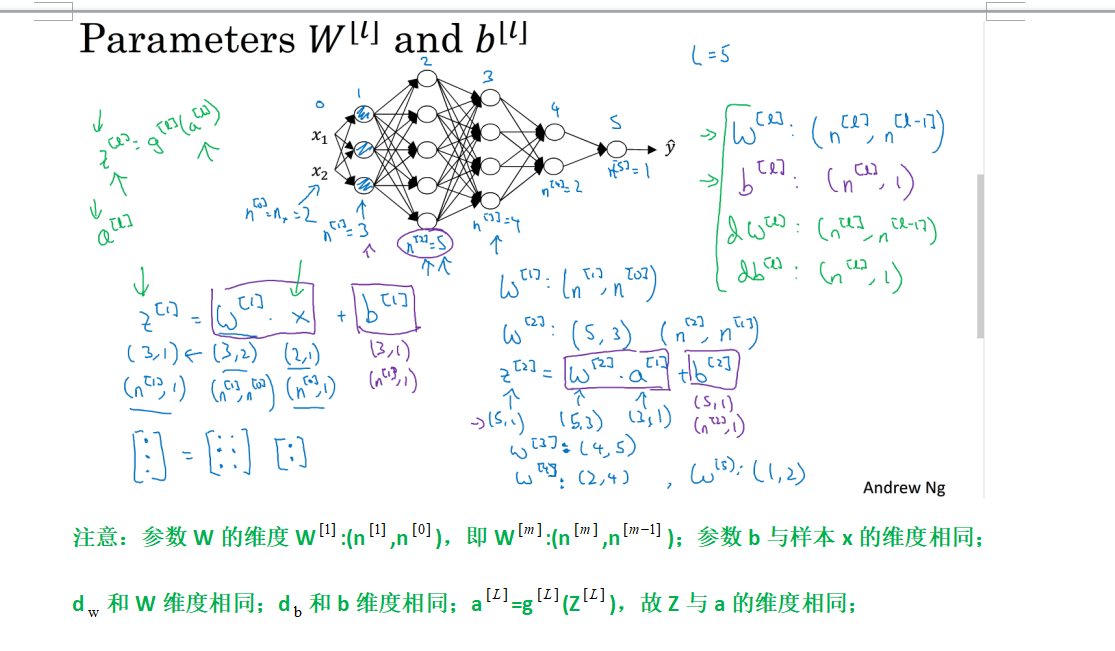 Parameters W^[l] and b^[l]
L=5
0 1 2 3 4 5
x₁
x₂
ŷ
z^[l] = g^[l](a^[l])
a^[l]
n^[0]=nₓ=2
n^[1]=3
n^[2]=5
n^[3]=4
n^[4]=2
n^[5]=1
W^[l]: (n^[l], n^[l-1])
b^[l]: (n^[l], 1)
dW^[l]: (n^[l], n^[l-1])
db^[l]: (n^[l], 1)
z^[1] = W^[1] · x + b^[1]
(3,1) ← (3,2) (2,1) (3,1)
(n^[1],1) (n^[1],n^[0]) (n^[0],1) (n^[1],1)
W^[1]: (n^[1], n^[0])
W^[2]: (5,3) (n^[2], n^[1])
z^[2] = W^[2] · a^[1] + b^[2]
→(5,1) (5,3) (3,1) (5,1)
(n^[2],1)
W^[3]: (4,5)
W^[4]: (2,4) , W^[5]: (1,2)
Andrew Ng
注意：参数 W 的维度 W^[1]:(n^[1],n^[0])，即 W^[m]:(n^[m],n^[m−1])；参数 b 与样本 x 的维度相同；
d_w 和 W 维度相同；d_b 和 b 维度相同；a^[L]=g^[L](Z^[L])，故 Z 与 a 的维度相同；